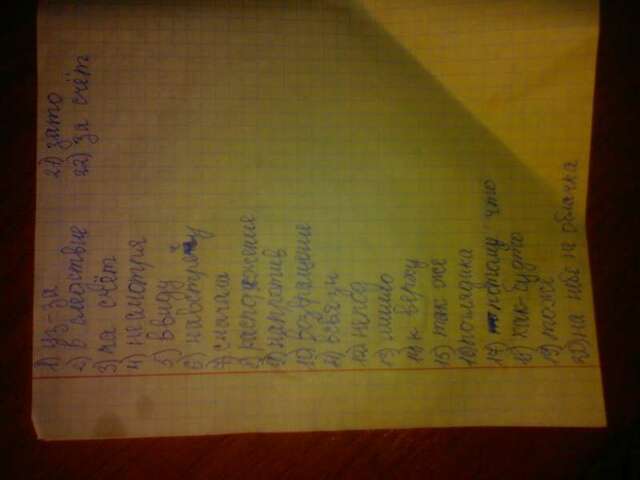 1) из-за
2) в следствие
3) на счёт
4) несмотря
5) ввиду
6) навстречу
7) сначала
8) расположение
9) напротив
10) возвращение
11)
12) из под
13) мимо
14) к верху
15) так же
16)
17) потому что
18) как-будто
19) тоже
20) на небе не облачка
21) зато
22) за счёт